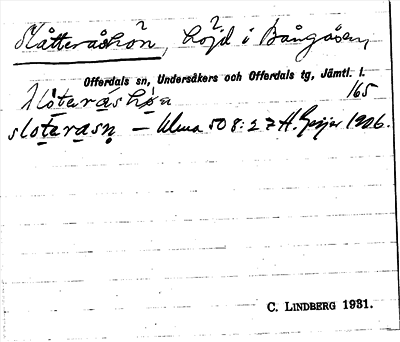 Slåtteråshön, höjd i Bångåsen,
Offerdals sn, Undersåkers och Offerdals tg, Jämtl. l.
slo̱tera̱shøn 165
slo̱ta̱ra̱sn̥ – Ulma 508:27 H. Geijer 1906.
C. LINDBERG 1931.